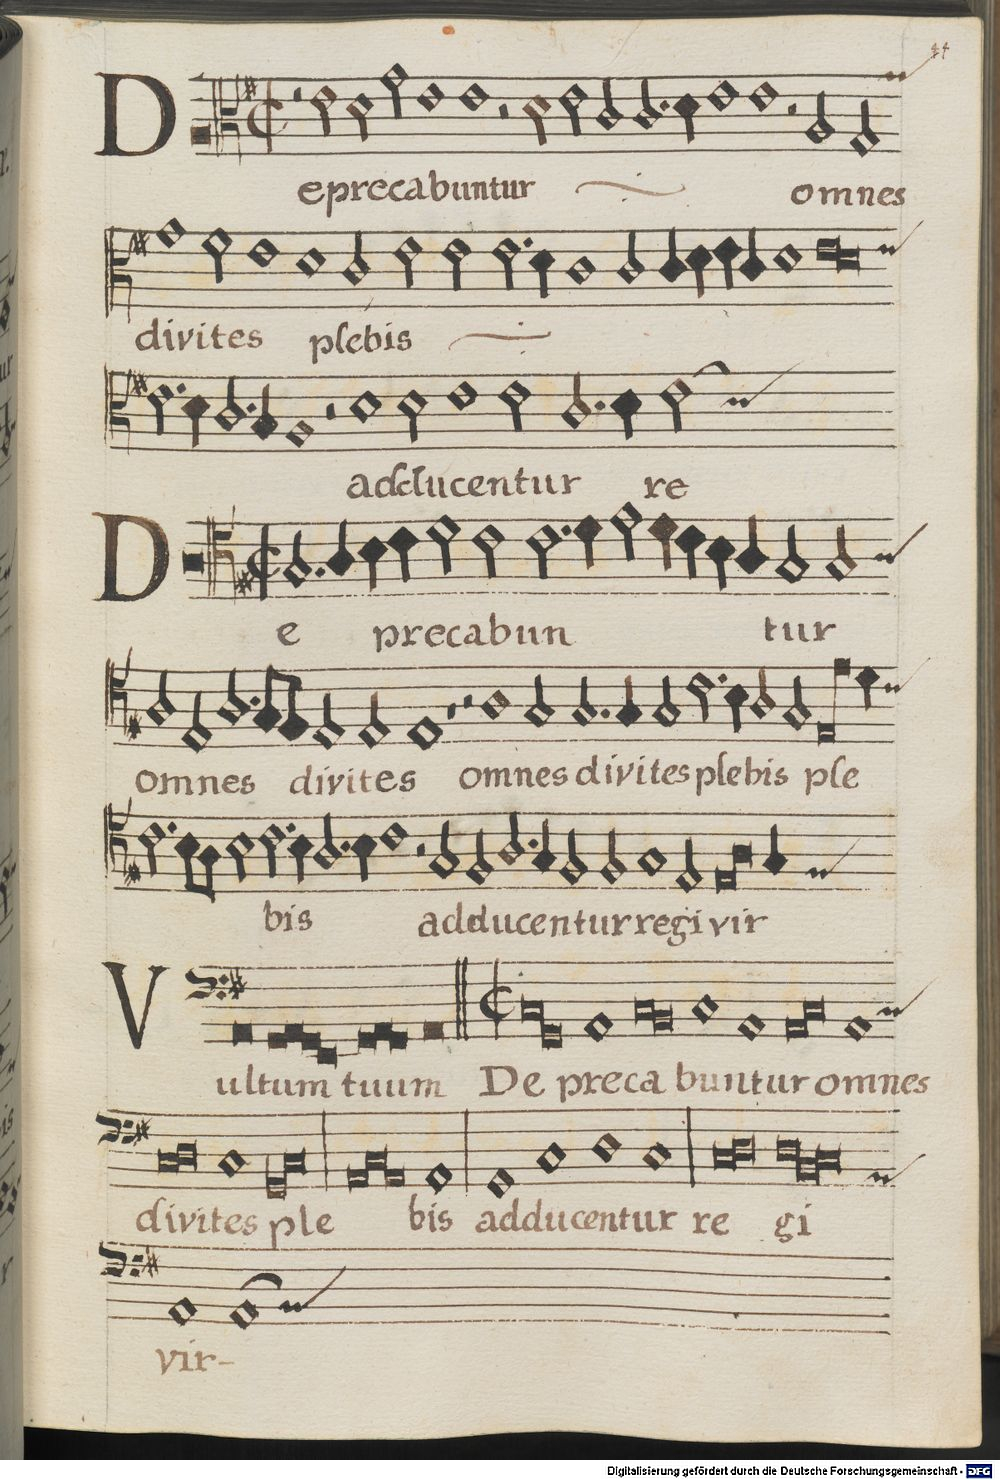 44
Deprecabuntur omnes
divites plebis
adducentur re
De precabun tur
omnes divites omnes divites plebis ple
bis adducentur regi vir
Vultum tuum De preca buntur omnes
divites ple bis adducentur re gi
vir-
Digitalisierung gefördert durch die Deutsche Forschungsgemeinschaft - DFG